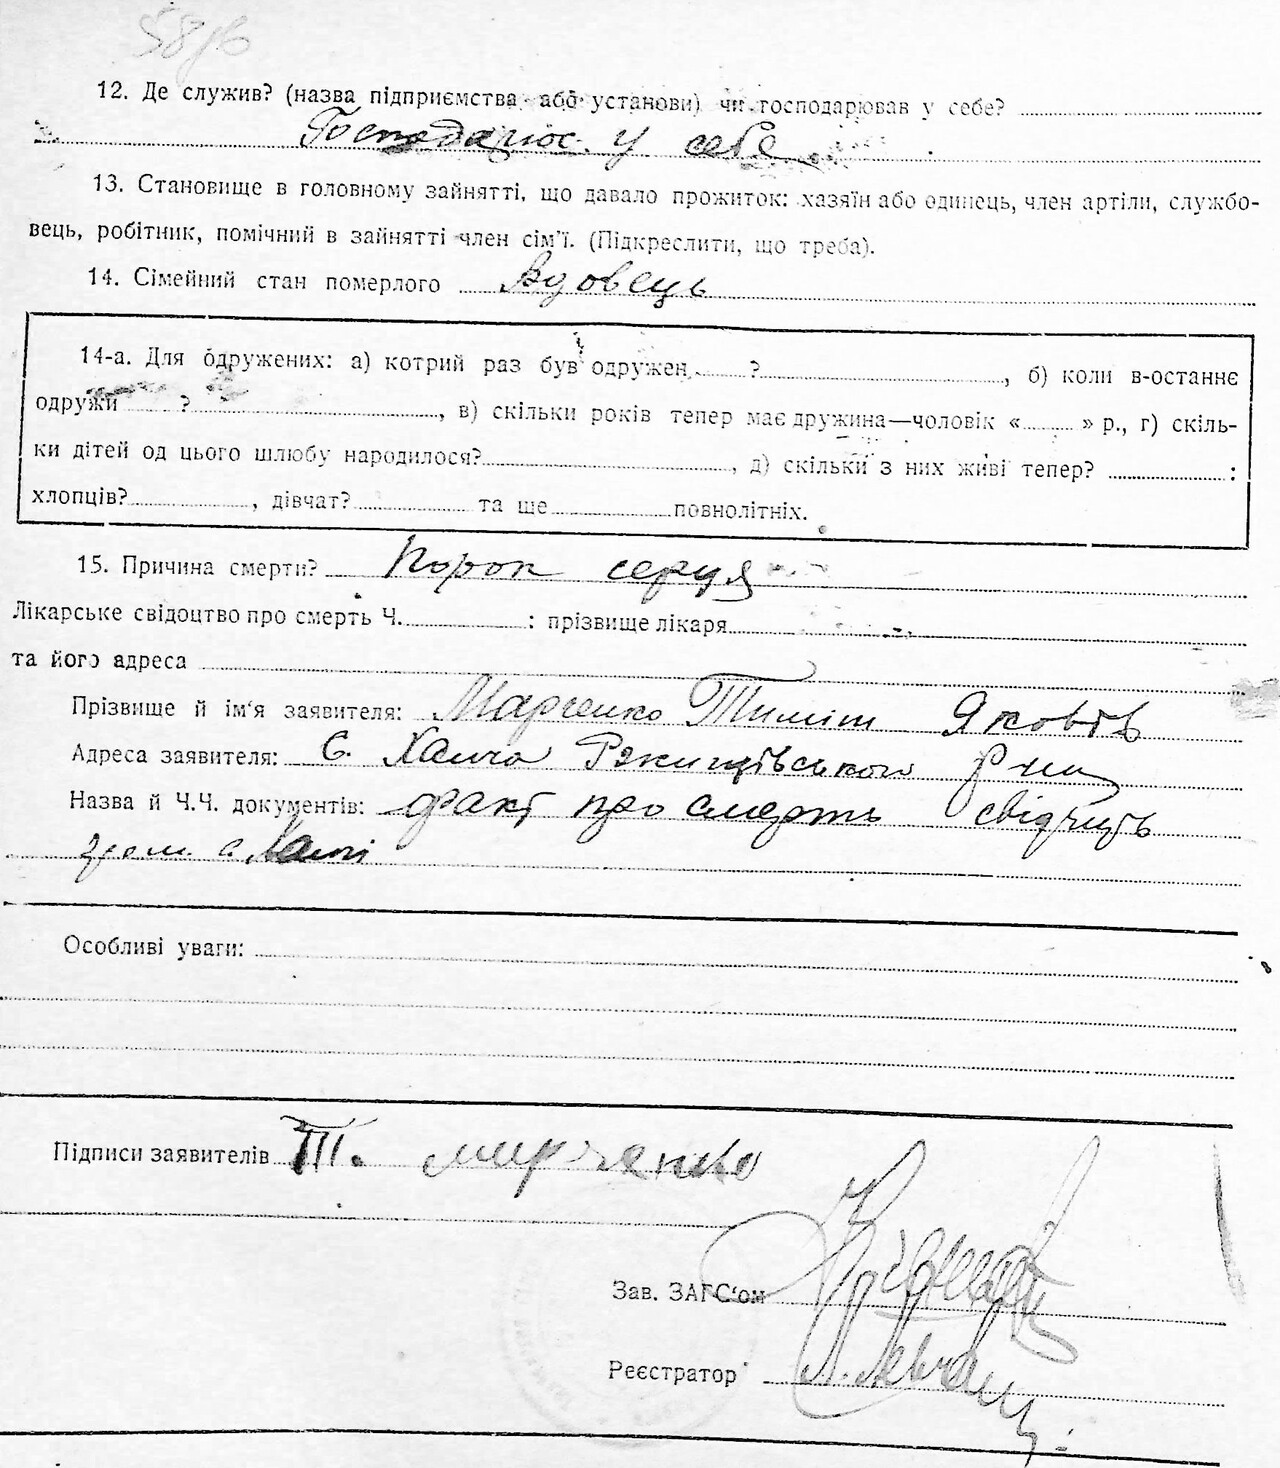 58
12. Де служив? (назва підприємства або установи) чи господарював у себе?
Господарює у себе
13. Становище в головному зайнятті, що давало прожиток: хазяїн або одинець, член артіли, службо-
вець, робітник, помічний в зайнятті член сім'ї. (Підкреслити, що треба).
14. Сімейний стан померлого Вдовець
14-а. Для одружених: а) котрий раз був одружен ? , б) коли в-останнє
одружи ? , в) скільки років тепер має дружина—чоловік « » р., г) скіль-
ки дітей од цього шлюбу народилося? , д) скільки з них живі тепер? :
хлопців? , дівчат? та ще повнолітніх.
15. Причина смерти? Порок серця
Лікарське свідоцтво про смерть Ч. : прізвище лікаря
та його адреса
Прізвище й ім'я заявителя: Марченко Тиміш Яковів
Адреса заявителя: С. Ржищівського р-ну
Назва й Ч.Ч. документів: факт про смерть свідчить
Особливі уваги:
Підписи заявителів Т. марченко
Зав. ЗАГС'ом
Реєстратор